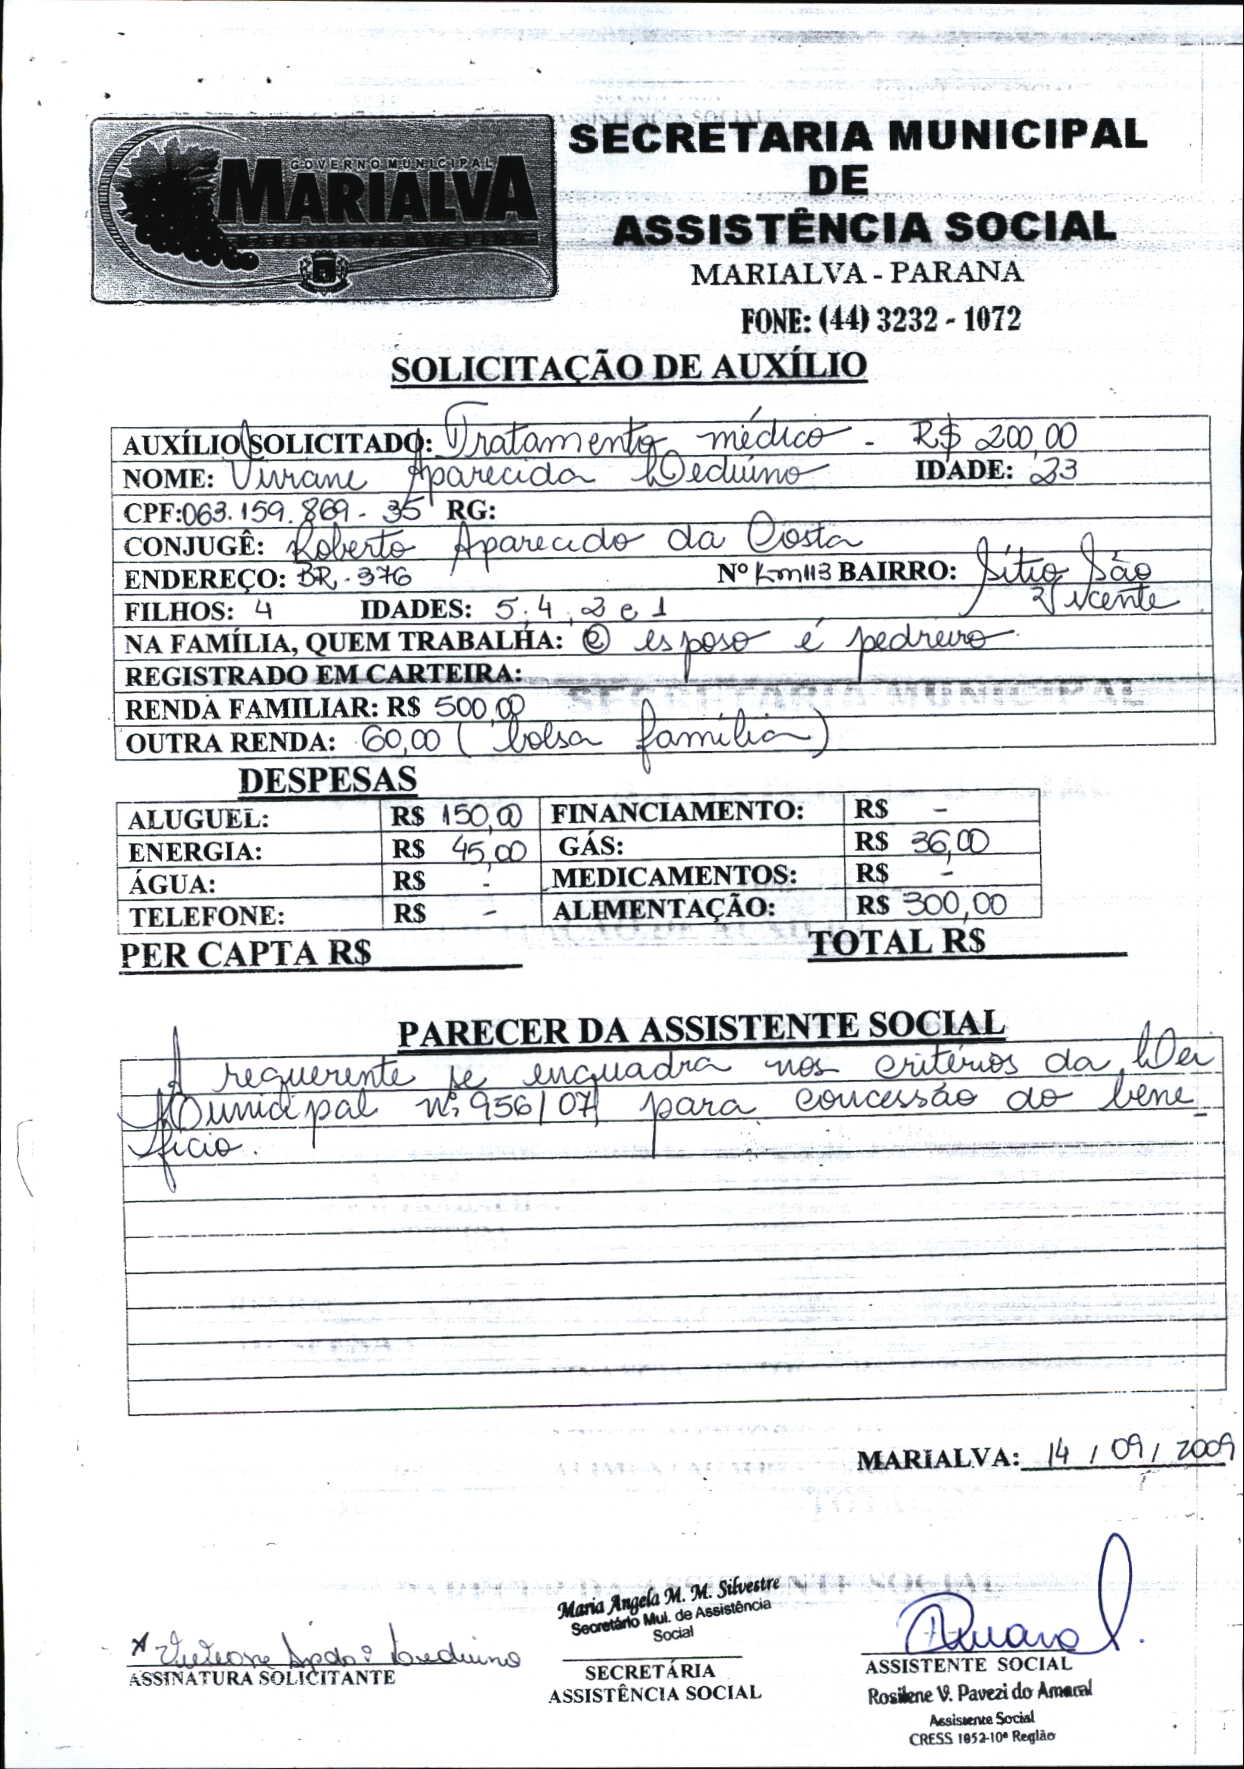 GOVERNO MUNICIPAL
MARIALVA
SECRETARIA MUNICIPAL
DE
ASSISTÊNCIA SOCIAL
MARIALVA - PARANA
FONE: (44) 3232 - 1072
SOLICITAÇÃO DE AUXÍLIO
AUXÍLIO SOLICITADO: Tratamento médico - R$ 200,00
NOME: Viviane Aparecida Leduino IDADE: 23
CPF: 063.159.869-35 RG:
CONJUGÊ: Roberto Aparecido da Costa
ENDEREÇO: BR-376 Nº Km 113 BAIRRO: Sítio São
Vicente
FILHOS: 4 IDADES: 5, 4, 2 e 1
NA FAMÍLIA, QUEM TRABALHA: O esposo é pedreiro.
REGISTRADO EM CARTEIRA:
RENDA FAMILIAR: R$ 500,00
OUTRA RENDA: 60,00 (bolsa família)
DESPESAS
ALUGUEL: R$ 150,00 FINANCIAMENTO: R$ -
ENERGIA: R$ 45,00 GÁS: R$ 36,00
ÁGUA: R$ - MEDICAMENTOS: R$ -
TELEFONE: R$ - ALIMENTAÇÃO: R$ 300,00
PER CAPTA R$ TOTAL R$
PARECER DA ASSISTENTE SOCIAL
A requerente se enquadra nos critérios da Lei
Municipal nº 956/07 para concessão do bene
fício.
MARIALVA: 14 / 09 / 2009
Maria Angela M. M. Silvestre
Secretário Mul. de Assistência
Social
ASSINATURA SOLICITANTE
SECRETÁRIA
ASSISTÊNCIA SOCIAL
ASSISTENTE SOCIAL
Rosilene V. Pavezi do Amaral
Assistente Social
CRESS 1852-10ª Região